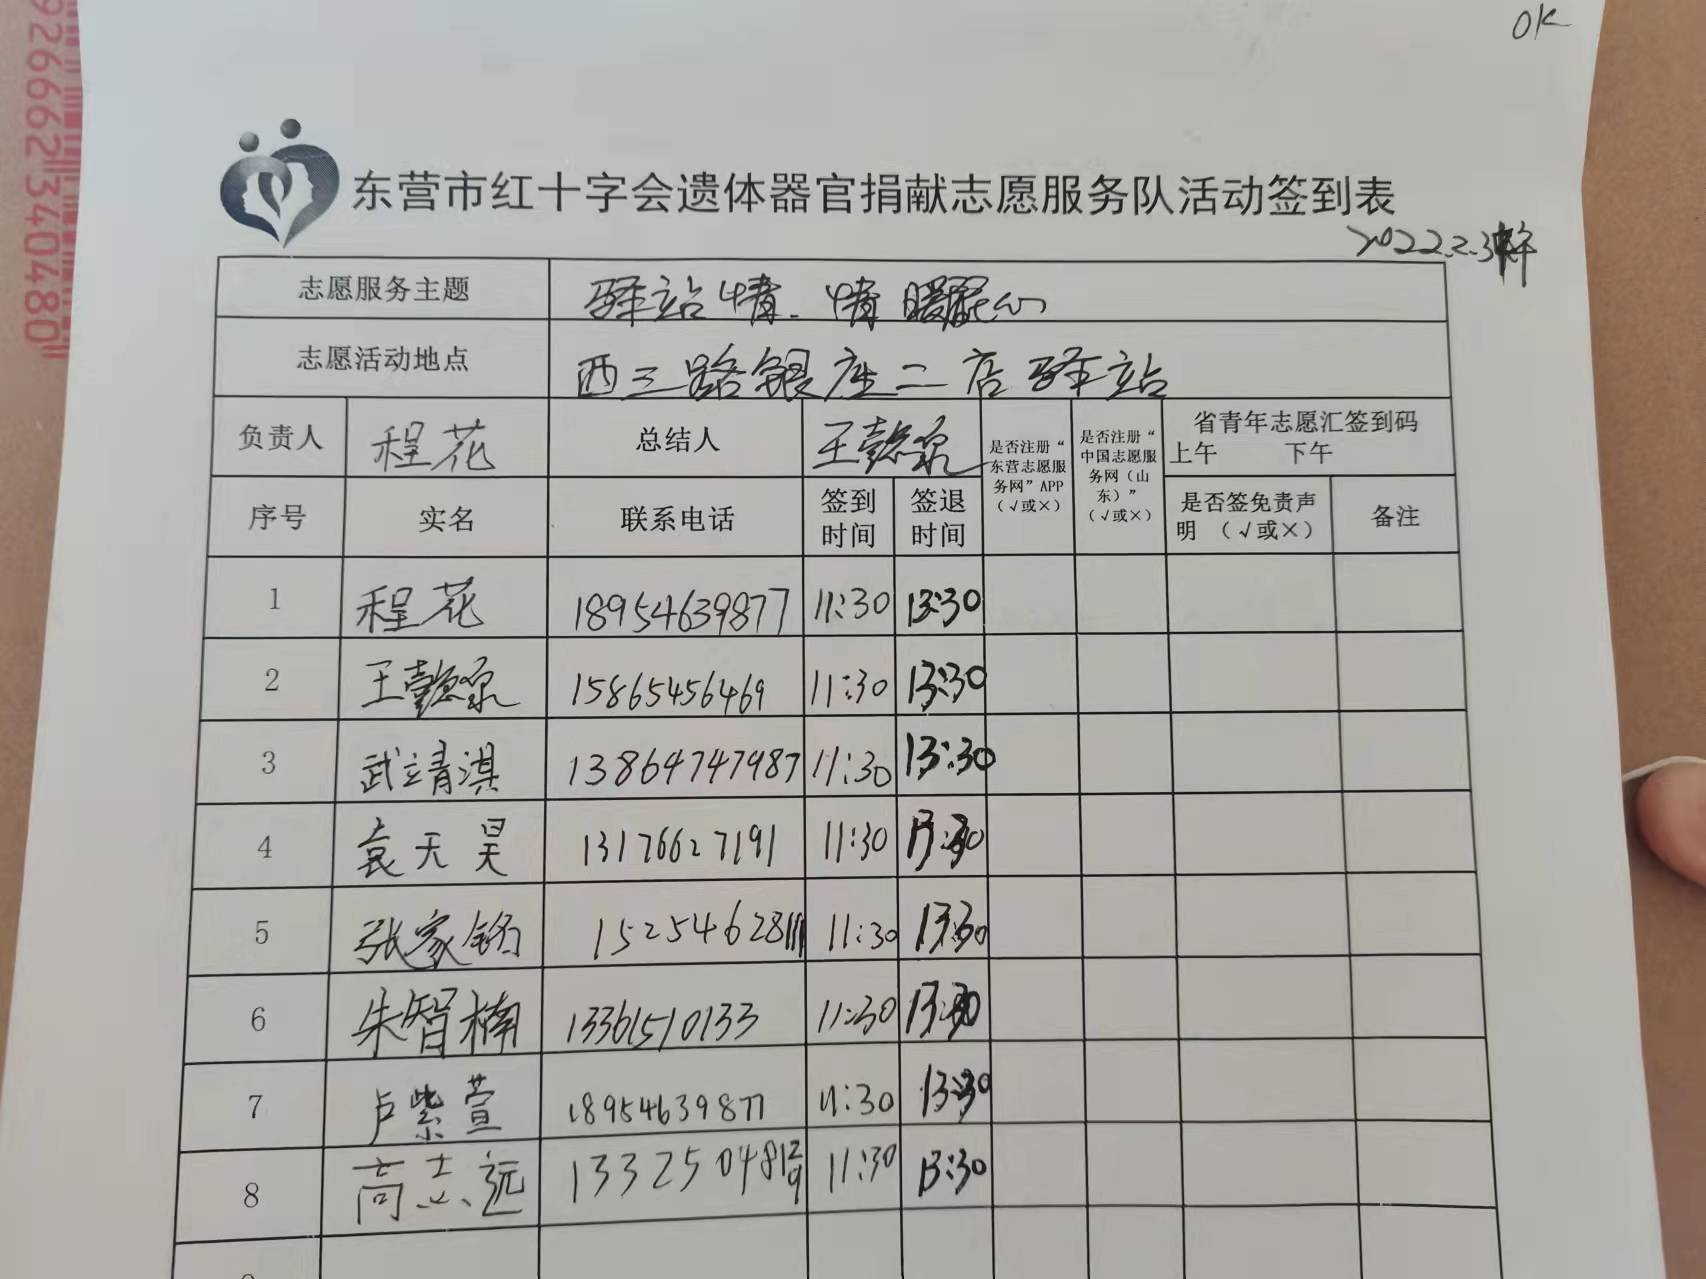 OK
9266623404801
东营市红十字会遗体器官捐献志愿服务队活动签到表
2022.2.3
志愿服务主题 驿站情.情暖人心
志愿活动地点 西三路银座二店驿站
负责人 程花 总结人 王懿泉 是否注册“东营志愿服务网”APP(√或×) 是否注册“中国志愿服务网(山东)”(√或×) 省青年志愿汇签到码 上午 下午
序号 实名 联系电话 签到时间 签退时间 是否签免责声明 (√或×) 备注
1 程花 18954639877 11:30 13:30
2 王懿泉 15865456469 11:30 13:30
3 武靖淇 13864747987 11:30 13:30
4 袁天昊 13176627191 11:30 13:30
5 张家铭 15254628111 11:30 13:30
6 朱智楠 13361510133 11:30 13:30
7 卢紫萱 18954639877 11:30 13:30
8 高志远 13325048129 11:30 13:30